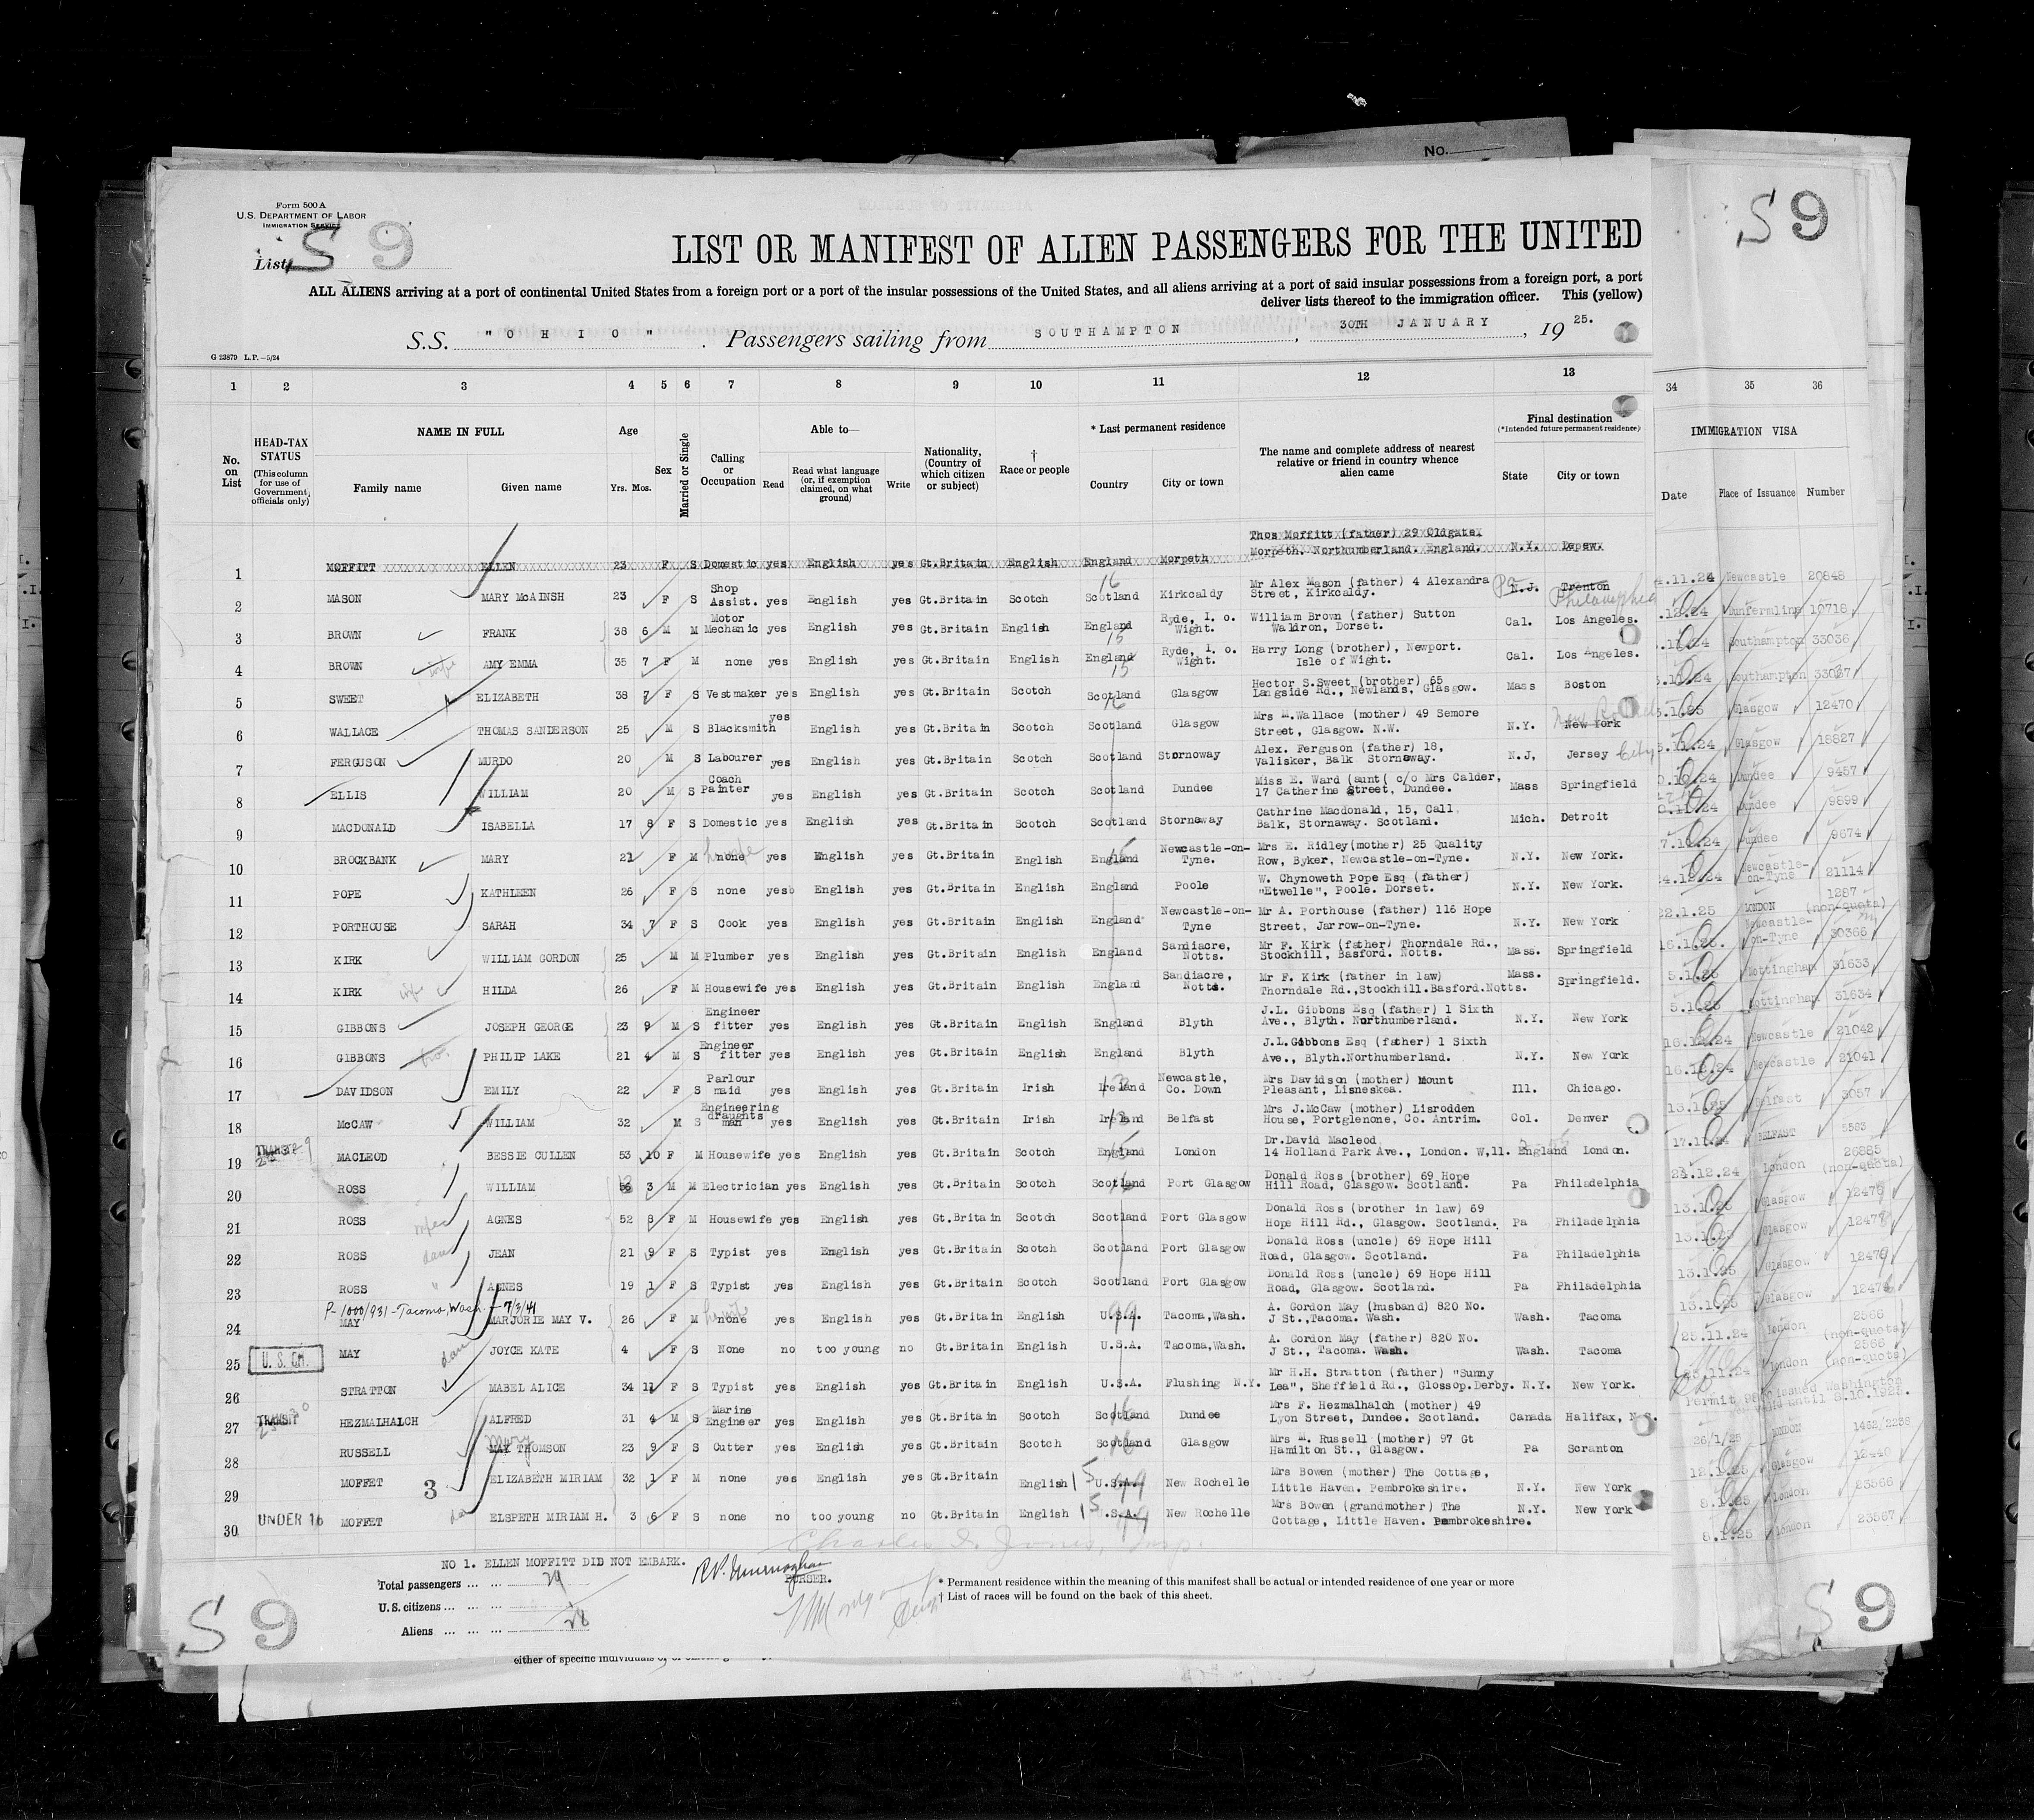 No.
Form 500 A
U.S. DEPARTMENT OF LABOR
IMMIGRATION SERVICE
List S 9
S 9
LIST OR MANIFEST OF ALIEN PASSENGERS FOR THE UNITED
ALL ALIENS arriving at a port of continental United States from a foreign port or a port of the insular possessions of the United States, and all aliens arriving at a port of said insular possessions from a foreign port, a port
deliver lists thereof to the immigration officer. This (yellow)
S.S. "OHIO". Passengers sailing from SOUTHAMPTON, 30TH JANUARY, 1925.
G 23879 L.P.—5/24
1 2 3 4 5 6 7 8 9 10 11 12 13 34 35 36
No. on List
HEAD-TAX STATUS (This column for use of Government officials only)
NAME IN FULL
Family name Given name
Age Yrs. Mos.
Sex
Married or Single
Calling or Occupation
Able to—
Read Read what language (or, if exemption claimed, on what ground) Write
Nationality, (Country of which citizen or subject)
† Race or people
* Last permanent residence
Country City or town
The name and complete address of nearest relative or friend in country whence alien came
Final destination (*Intended future permanent residence)
State City or town
IMMIGRATION VISA
Date Place of Issuance Number
1 MOFFITT ELLEN 23 F S Domestic yes English yes Gt.Britain English England Morpeth Thos Moffitt (father) 29 Oldgate. Morpeth. Northumberland. England. N.Y. Depew.
2 MASON MARY McAINSH 23 F S Shop Assist. yes English yes Gt.Britain Scotch Scotland 16 Kirkcaldy Mr Alex Mason (father) 4 Alexandra Street, Kirkcaldy. N.J. Pa Trenton Philadelphia .11.24 Newcastle 20848
3 BROWN FRANK 38 6 M M Motor Mechanic yes English yes Gt.Britain English England 15 Ryde, I. o. Wight. William Brown (father) Sutton Waldron, Dorset. Cal. Los Angeles. .12.24 Dunfermline 10718
4 BROWN wife AMY EMMA 35 7 F M none yes English yes Gt.Britain English England 15 Ryde, I. o. Wight. Harry Long (brother), Newport. Isle of Wight. Cal. Los Angeles. Southampton 33036
5 SWEET ELIZABETH 38 7 F S Vestmaker yes English yes Gt.Britain Scotch Scotland 16 Glasgow Hector S.Sweet (brother) 65 Langside Rd., Newlands, Glasgow. Mass Boston Southampton 33037
6 WALLACE THOMAS SANDERSON 25 M S Blacksmith yes English yes Gt.Britain Scotch Scotland Glasgow Mrs M.Wallace (mother) 49 Semore Street, Glasgow. N.W. N.Y. New York Glasgow 12470
7 FERGUSON MURDO 20 M S Labourer yes English yes Gt.Britain Scotch Scotland Stornoway Alex. Ferguson (father) 18, Valisker, Balk Stornoway. N.J, Jersey City Glasgow 18827
8 ELLIS WILLIAM 20 M S Coach Painter yes English yes Gt.Britain Scotch Scotland Dundee Miss E. Ward (aunt( c/o Mrs Calder, 17 Catherine Street, Dundee. Mass Springfield Dundee 9457
9 MACDONALD ISABELLA 17 8 F S Domestic yes English yes Gt.Britain Scotch Scotland Stornoway Cathrine Macdonald, 15, Call Balk, Stornaway. Scotland. Mich. Detroit Dundee 9899
10 BROCKBANK MARY 21 F M none yes English yes Gt.Britain English England Newcastle-on-Tyne. Mrs E. Ridley(mother) 25 Quality Row, Byker, Newcastle-on-Tyne. N.Y. New York. Dundee 9674
11 POPE KATHLEEN 26 F S none yes English yes Gt.Britain English England Poole W. Chynoweth Pope Esq (father) "Etwelle", Poole. Dorset. N.Y. New York. Newcastle-on-Tyne 21114
12 PORTHOUSE SARAH 34 7 F S Cook yes English yes Gt.Britain English England Newcastle-on-Tyne Mr A. Porthouse (father) 116 Hope Street, Jarrow-on-Tyne. N.Y. New York 22.1.25 LONDON 1287 (non-quota)
13 KIRK WILLIAM GORDON 25 M M Plumber yes English yes Gt.Britain English England Sandiacre, Notts. Mr F. Kirk (father) Thorndale Rd., Stockhill, Basford. Notts. Mass. Springfield 16.1.25. Newcastle-on-Tyne 30366
14 KIRK wife HILDA 26 F M Housewife yes English yes Gt.Britain English England Sandiacre, Notts. Mr F. Kirk (father in law) Thorndale Rd.,Stockhill.Basford.Notts. Mass. Springfield. 5.1.25 Nottingham 31633
15 GIBBONS JOSEPH GEORGE 23 9 M S Engineer fitter yes English yes Gt.Britain English England Blyth J.L. Gibbons Esq (father) 1 Sixth Ave., Blyth. Northumberland. N.Y. New York 5.1.25 Nottingham 31634
16 GIBBONS bro. PHILIP LAKE 21 4 M S Engineer fitter yes English yes Gt.Britain English England Blyth J.L.Gibbons Esq (father) 1 Sixth Ave., Blyth.Northumberland. N.Y. New York 16.12.24 Newcastle 21042
17 DAVIDSON EMILY 22 F S Parlour maid yes English yes Gt.Britain Irish Ireland 13 Newcastle, Co. Down Mrs Davidson (mother) Mount Pleasant, Lisneskea. Ill. Chicago. 16.12.24 Newcastle 21041
18 McCAW WILLIAM 32 M S Engineering draughts man yes English yes Gt.Britain Irish Ireland 13 Belfast Mrs J.McCaw (mother) Lisrodden House, Portglenone, Co. Antrim. Col. Denver 13.1.25 Belfast 3057
19 TRANSIT MACLEOD BESSIE CULLEN 53 10 F M Housewife yes English yes Gt.Britain Scotch England 15 London Dr.David Macleod 14 Holland Park Ave., London. W,11. England London. BELFAST 5583
20 ROSS WILLIAM 3 M M Electrician yes English yes Gt.Britain Scotch Scotland 16 Port Glasgow Donald Ross (brother) 69 Hope Hill Road, Glasgow. Scotland. Pa Philadelphia 24.12.24 London 26885 (non-quota)
21 ROSS AGNES 52 8 F M Housewife yes English yes Gt.Britain Scotch Scotland Port Glasgow Donald Ross (brother in law) 69 Hope Hill Rd., Glasgow. Scotland. Pa Philadelphia 13.1.25 Glasgow
22 ROSS dau JEAN 21 9 F S Typist yes English yes Gt.Britain Scotch Scotland Port Glasgow Donald Ross (uncle) 69 Hope Hill Road, Glasgow. Scotland. Pa Philadelphia 13.1.25 Glasgow
23 ROSS " AGNES 19 1 F S Typist yes English yes Gt.Britain Scotch Scotland Port Glasgow Donald Ross (uncle) 69 Hope Hill Road, Glasgow. Scotland. Pa Philadelphia 13.1.25 Glasgow
P-1000/931-Tacoma, Wash. - 7/3/41
24 MAY MARJORIE MAY V. 26 F M none yes English yes Gt.Britain English U.S.A. 99 Tacoma,Wash. A. Gordon May (husband) 820 No. J St.,Tacoma. Wash. Wash. Tacoma 13.1.25 Glasgow
25 U. S. CH. MAY dau JOYCE KATE 4 F S None no too young no Gt.Britain English U.S.A. Tacoma,Wash. A. Gordon May (father) 820 No. J St., Tacoma. Wash. Wash. Tacoma 25.11.24 London 2566 (non-quota)
26 STRATTON MABEL ALICE 34 11 F S Typist yes English yes Gt.Britain English U.S.A. Flushing N.Y. Mr H.H. Stratton (father) "Sunny Lea", Sheffield Rd., Glossop.Derby. N.Y. New York. 25.11.24 London 2565 (non-quota)
27 TRANSIT HEZMALHALCH ALFRED 31 4 M S Marine Engineer yes English yes Gt.Britain Scotch Scotland Dundee Mrs F. Hezmalhalch (mother) 49 Lyon Street, Dundee. Scotland. Canada Halifax, N.S. Permit issued Washington until 8.10.1925.
28 RUSSELL MAY THOMSON Mary 23 9 F S Cutter yes English yes Gt.Britain Scotch Scotland 16 Glasgow Mrs M. Russell (mother) 97 Gt Hamilton St., Glasgow. Pa Scranton 26/1/25 LONDON 1462/2238
29 MOFFET ELIZABETH MIRIAM 32 1 F M none yes English yes Gt.Britain English 15 U.S.A. 99 New Rochelle Mrs Bowen (mother) The Cottage, Little Haven. Pembrokeshire. N.Y. New York 12.1.25 Glasgow 12440
30 UNDER 16 MOFFET 3 dau ELSPETH MIRIAM H. 3 6 F S none no too young no Gt.Britain English 15 .S.A. 99 New Rochelle Mrs Bowen (grandmother) The Cottage, Little Haven. Pembrokeshire. N.Y. New York 8.1.25 London 23566
8.1.25 London 23567
Charles I. Jones, Insp.
NO 1. ELLEN MOFFITT DID NOT EMBARK.
PURSER.
Total passengers ... ... 29
U.S. citizens ... ... ... 1
Aliens ... ... ... 28
* Permanent residence within the meaning of this manifest shall be actual or intended residence of one year or more
† List of races will be found on the back of this sheet.
S 9
S 9
either of specific individuals